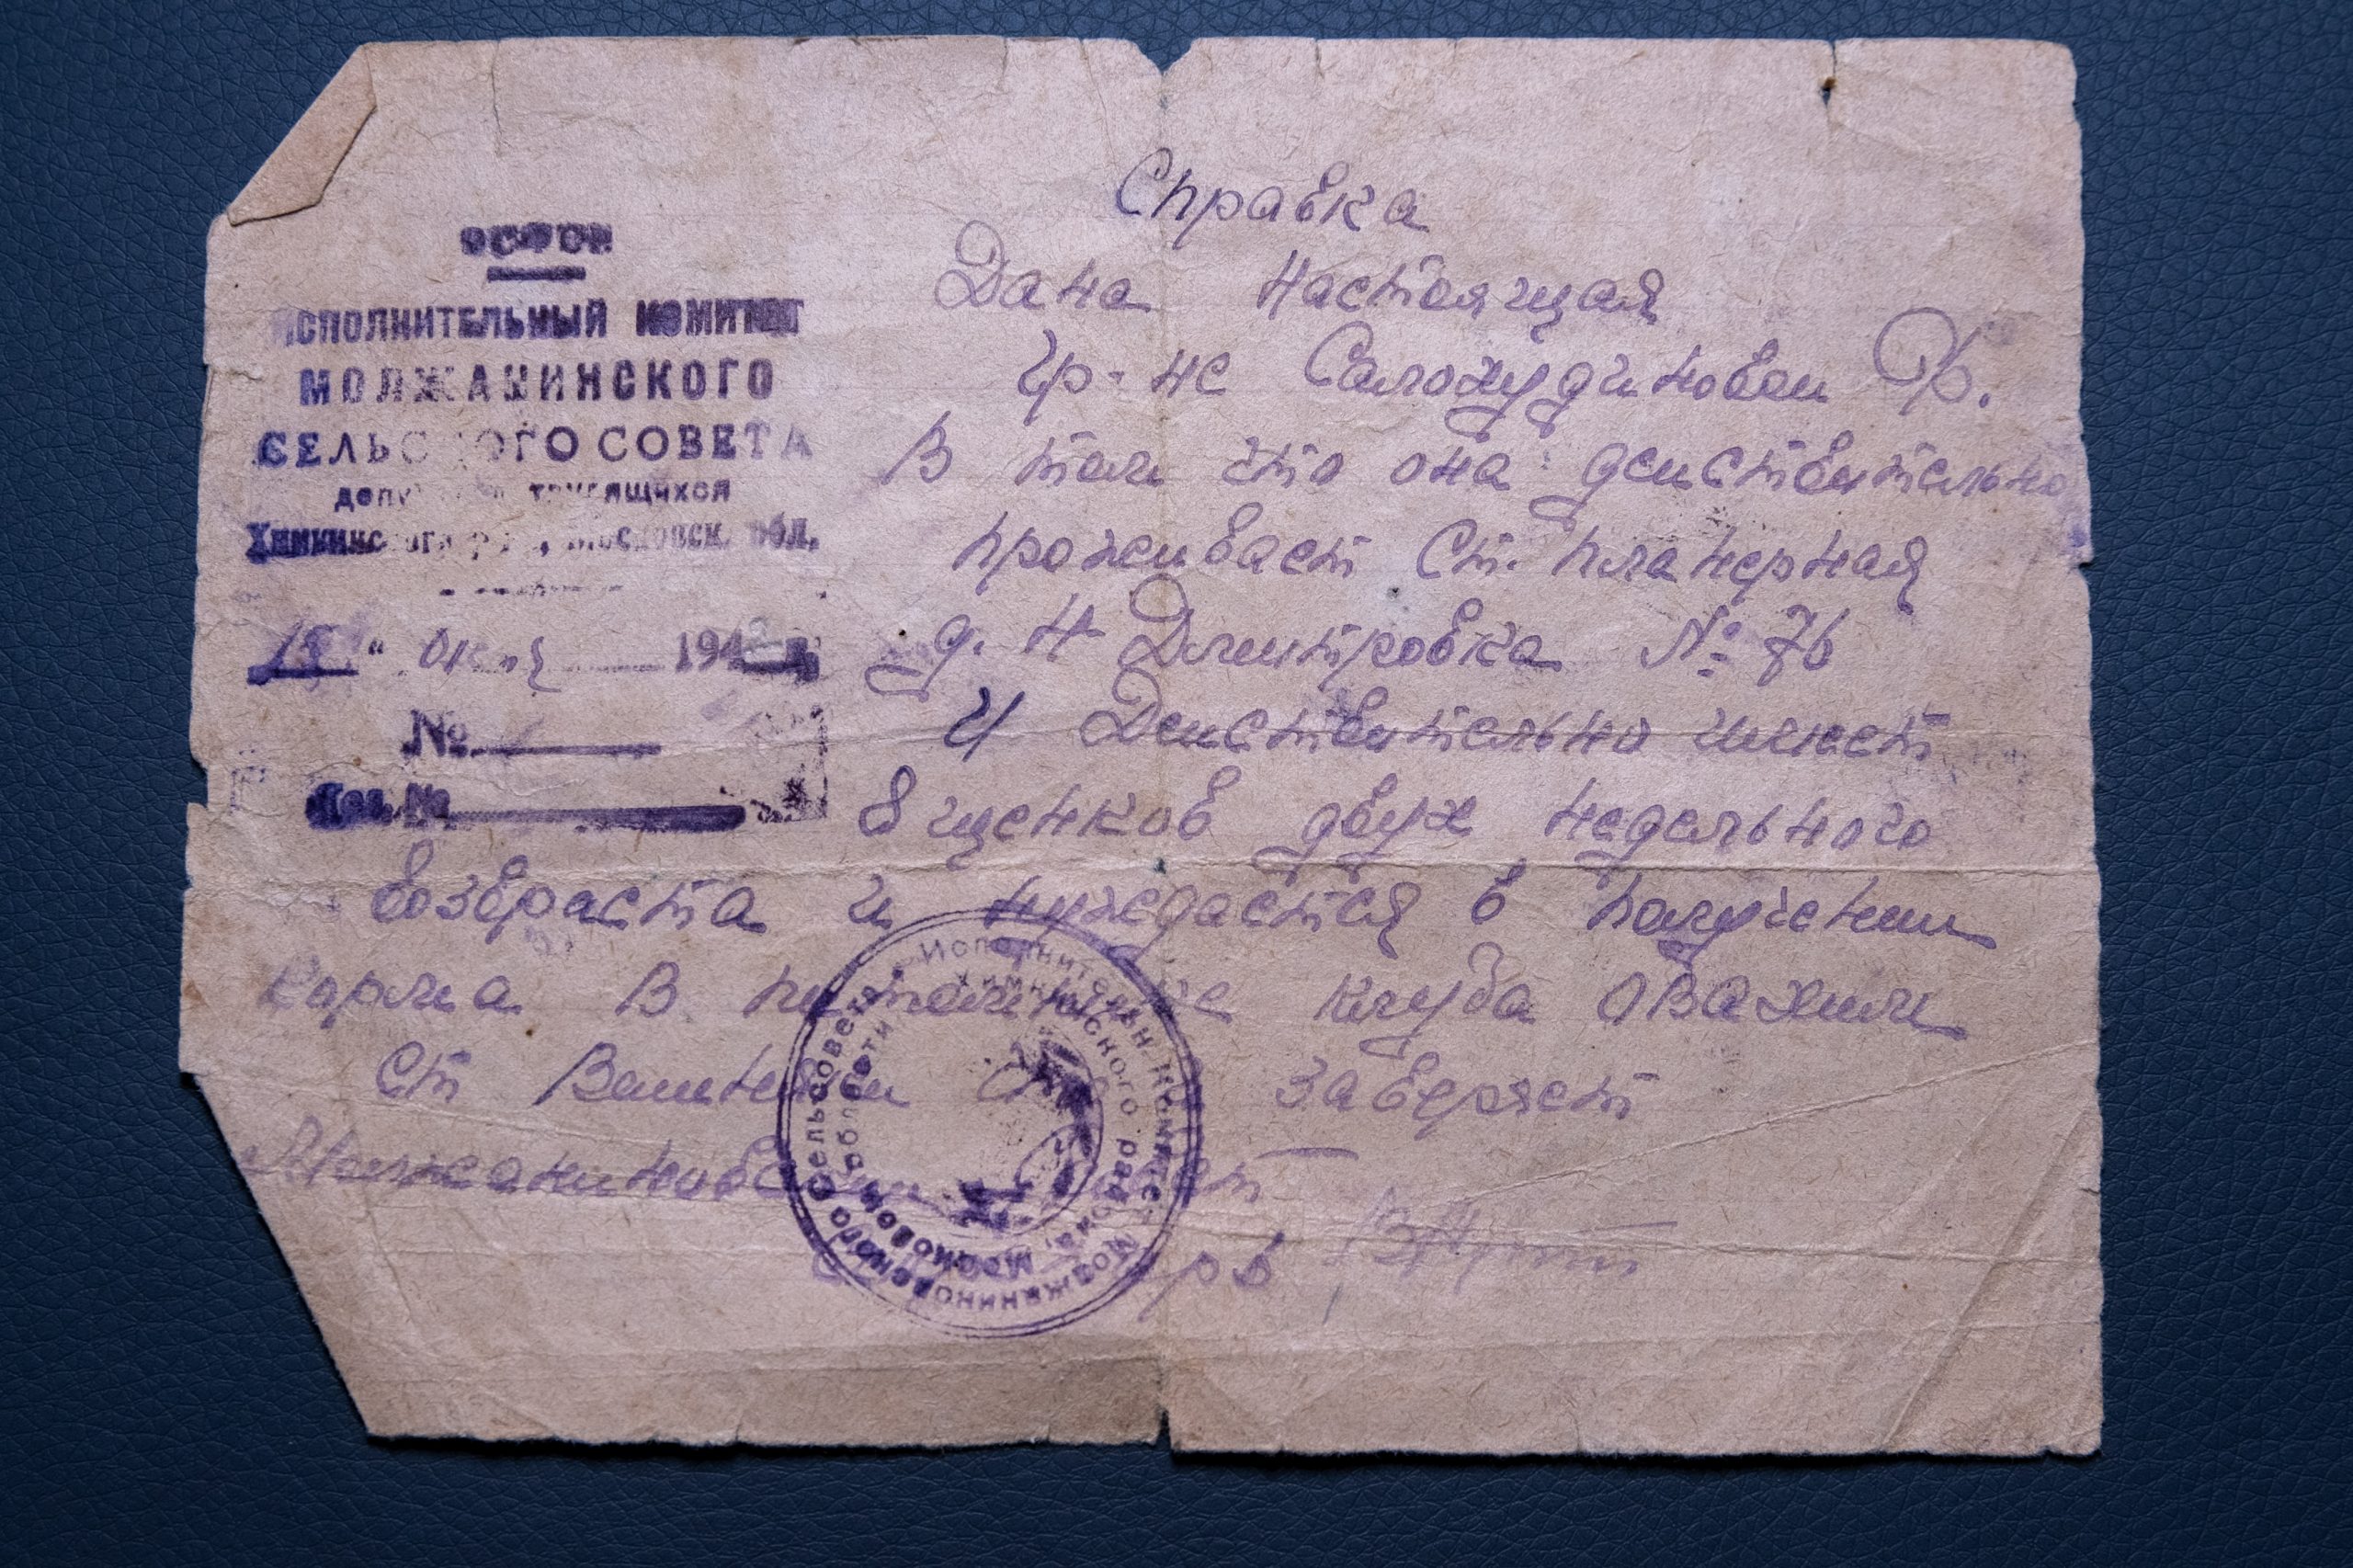 РСФСР
ИСПОЛНИТЕЛЬНЫЙ КОМИТЕТ
МОЛЖАНИНСКОГО
СЕЛЬСКОГО СОВЕТА
депутатов трудящихся
Химкинского р-на, Московск. обл.
15 " окт 194
№
Исх. №
Справка
Дана настоящая
гр-не Салохудиновой Ф.
В том что она деиствительно
проживает Ст. планерная
д. Н Дмитровка № 76
И Деиствительно имеет
8 щенков двух недельного
возвраста и нуждается в получении
Корма В питомнике клуба ОВАхим
Ст заверяет
Молжаниновский Совет
Исполнительн. Комитет Молжаниновского Сельсовета
Химкинского района, Московской области